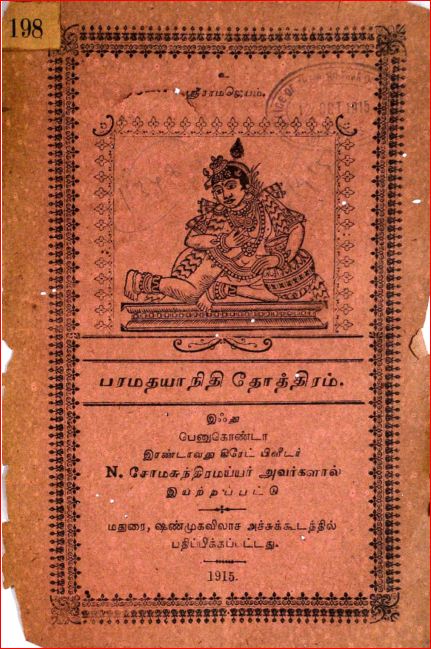 198
உ
ஸ்ரீராமஜெயம்.
OCT 1915
பரமதயாநிதி தோத்திரம்.
இஃது
பெனுகொண்டா
இரண்டாவது கிரேட் பிளீடர்
N. சோமசுந்திரமய்யர் அவர்களால்
இயற்றப்பட்டு
மதுரை, ஷண்முகவிலாச அச்சுக்கூடத்தில்
பதிப்பிக்கப்பட்டது.
1915.